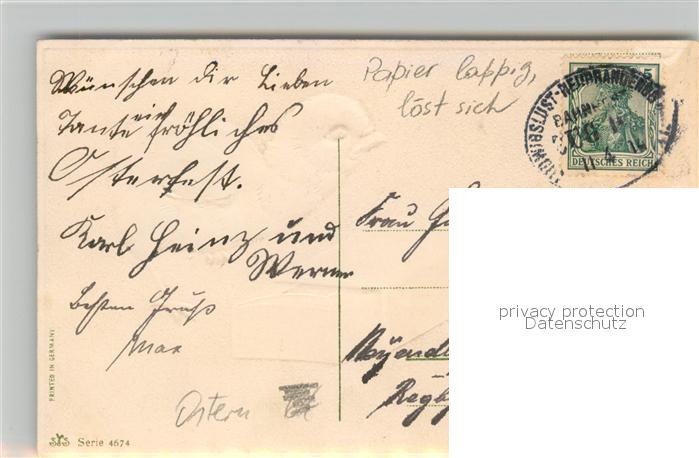 Wünschen dir Lieben
Tante ein fröhliches
Osterfest.
Karl Heinz und
Werner
Besten Gruß
Max
Papier lappig,
löst sich
Ostern
LUDWIGSLUST-NEUBRANDENBURG
BAHNPOST
11 4 11
5
DEUTSCHES REICH
Frau
Regbz
privacy protection
Datenschutz
PRINTED IN GERMANY
Serie 4674